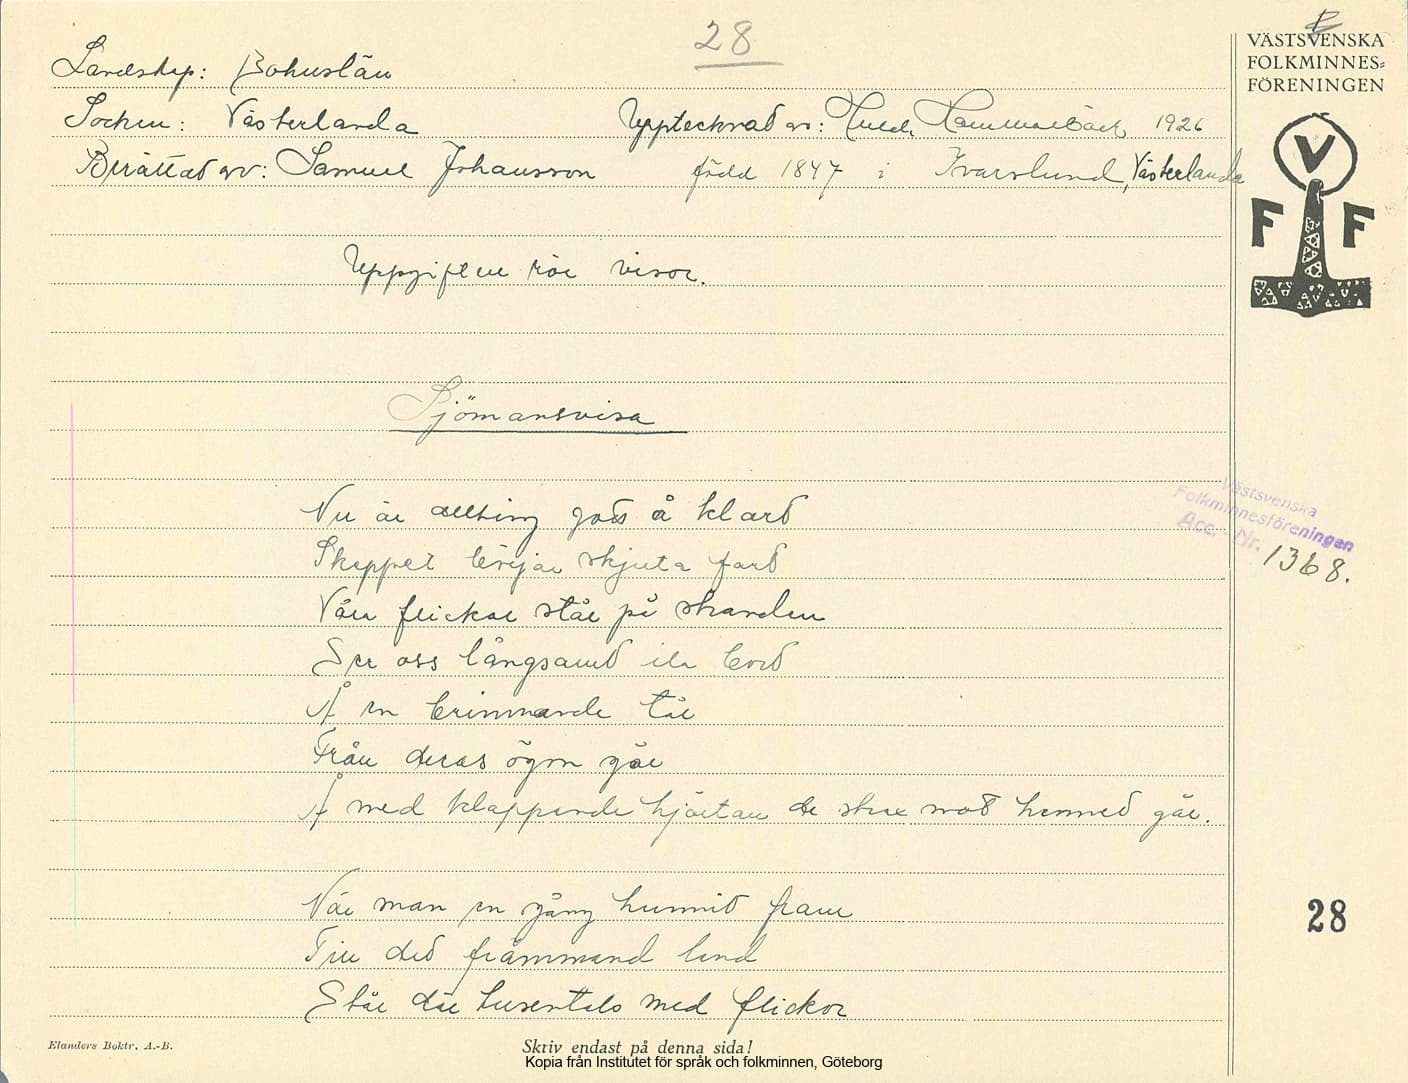 28
VÄSTSVENSKA
FOLKMINNES=
FÖRENINGEN
Landskap: Bohuslän
Socken: Västerlanda Upptecknad av: Huld. Hammarbäck 1926
Berättad av: Samuel Johansson född 1847 i Ivarslund, Västerlanda
V
F F
Uppgiften rör visor.
Sjömansvisa
Nu är allting gods å klard
Skeppet börjar skjuta fard
Våra flickor står på stranden
Ser oss långsamd ila bord
Å en brinnande tår
Från deras ögon går
Å med klappande hjärtan de ska mot hemmed går.
Västsvenska
Folkminnesföreningen
Acc. - Nr. 1368.
När man en gång hunnid fram
Till ded främmand land
Står där tusentals med flickor
28
Elanders Boktr. A.-B.
Skriv endast på denna sida!
Kopia från Institutet för språk och folkminnen, Göteborg